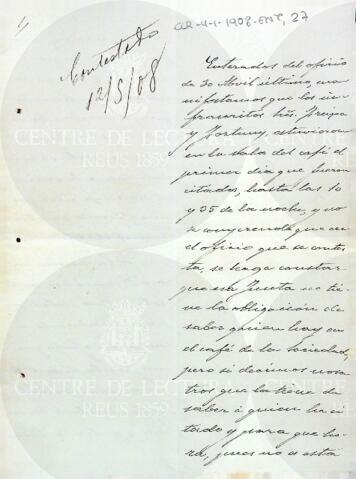 CLR-4-1-1908-ENT, 27
Contestado
12/5/08
Enterados del oficio
de 30 Abril último, ma
nifestamos que los in-
frascritos Srs. Freixa
y Fortuny, estuvieron
en la sala del café el
primer dia que fueron
citados, hasta las 10
y 35 de la noche, y no
se comprende que en
el oficio que se contes
ta, se haga constar
que esa Junta no tie
ne la obligación de
saber quien hay en
el café de la Sociedad,
pero si decimos noso
tros que la tiene de
saber á quien ha ci
tado y para que ho
ra, pues no se está
CENTRE DE LECTURA
REUS 1859
CENTRE DE LECTURA
REUS 1859